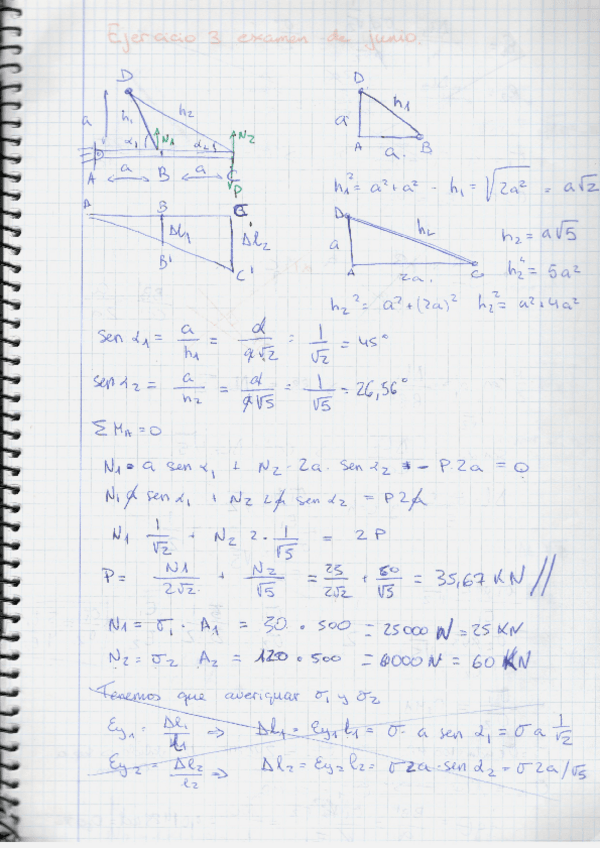 Ejercicio 3 examen de junio.
D
a h1 h2 N1 N2
α1 α2
A a B a C
P
A B C
Δl1 Δl2
B' C'
D
a h1
A a. B
h1² = a²+a² - h1 = √2a² = a√2
D h2
a
A 2a. C
h2 = a√5
h2² = 5a²
h2² = a²+(2a)² h2² = a²+4a²
sen α1 = a/h1 = a/a√2 = 1/√2 = 45°
sen α2 = a/h2 = a/a√5 = 1/√5 = 26,56°
ΣMA=0
N1·a sen α1 + N2·2a·sen α2 - P·2a = 0
N1 a sen α1 + N2 2a sen α2 = P2a
N1 1/√2 + N2 2·1/√5 = 2P
P= N1/2√2 + N2/√5 = 25/2√2 + 60/√5 = 35,67 KN //
N1 = σ1 · A1 = 50 · 500 = 25000 N = 25 KN
N2 = σ2 A2 = 120 · 500 = 6000 N = 60 KN
Tenemos que averiguar σ1 y σ2
Ey1 = Δl1/l1 => Δl1 = Ey1 l1 = σ· a sen α1 = σ a 1/√2
Ey2 = Δl2/l2 => Δl2 = Ey2 l2 = σ2a·sen α2 = σ2a/√5